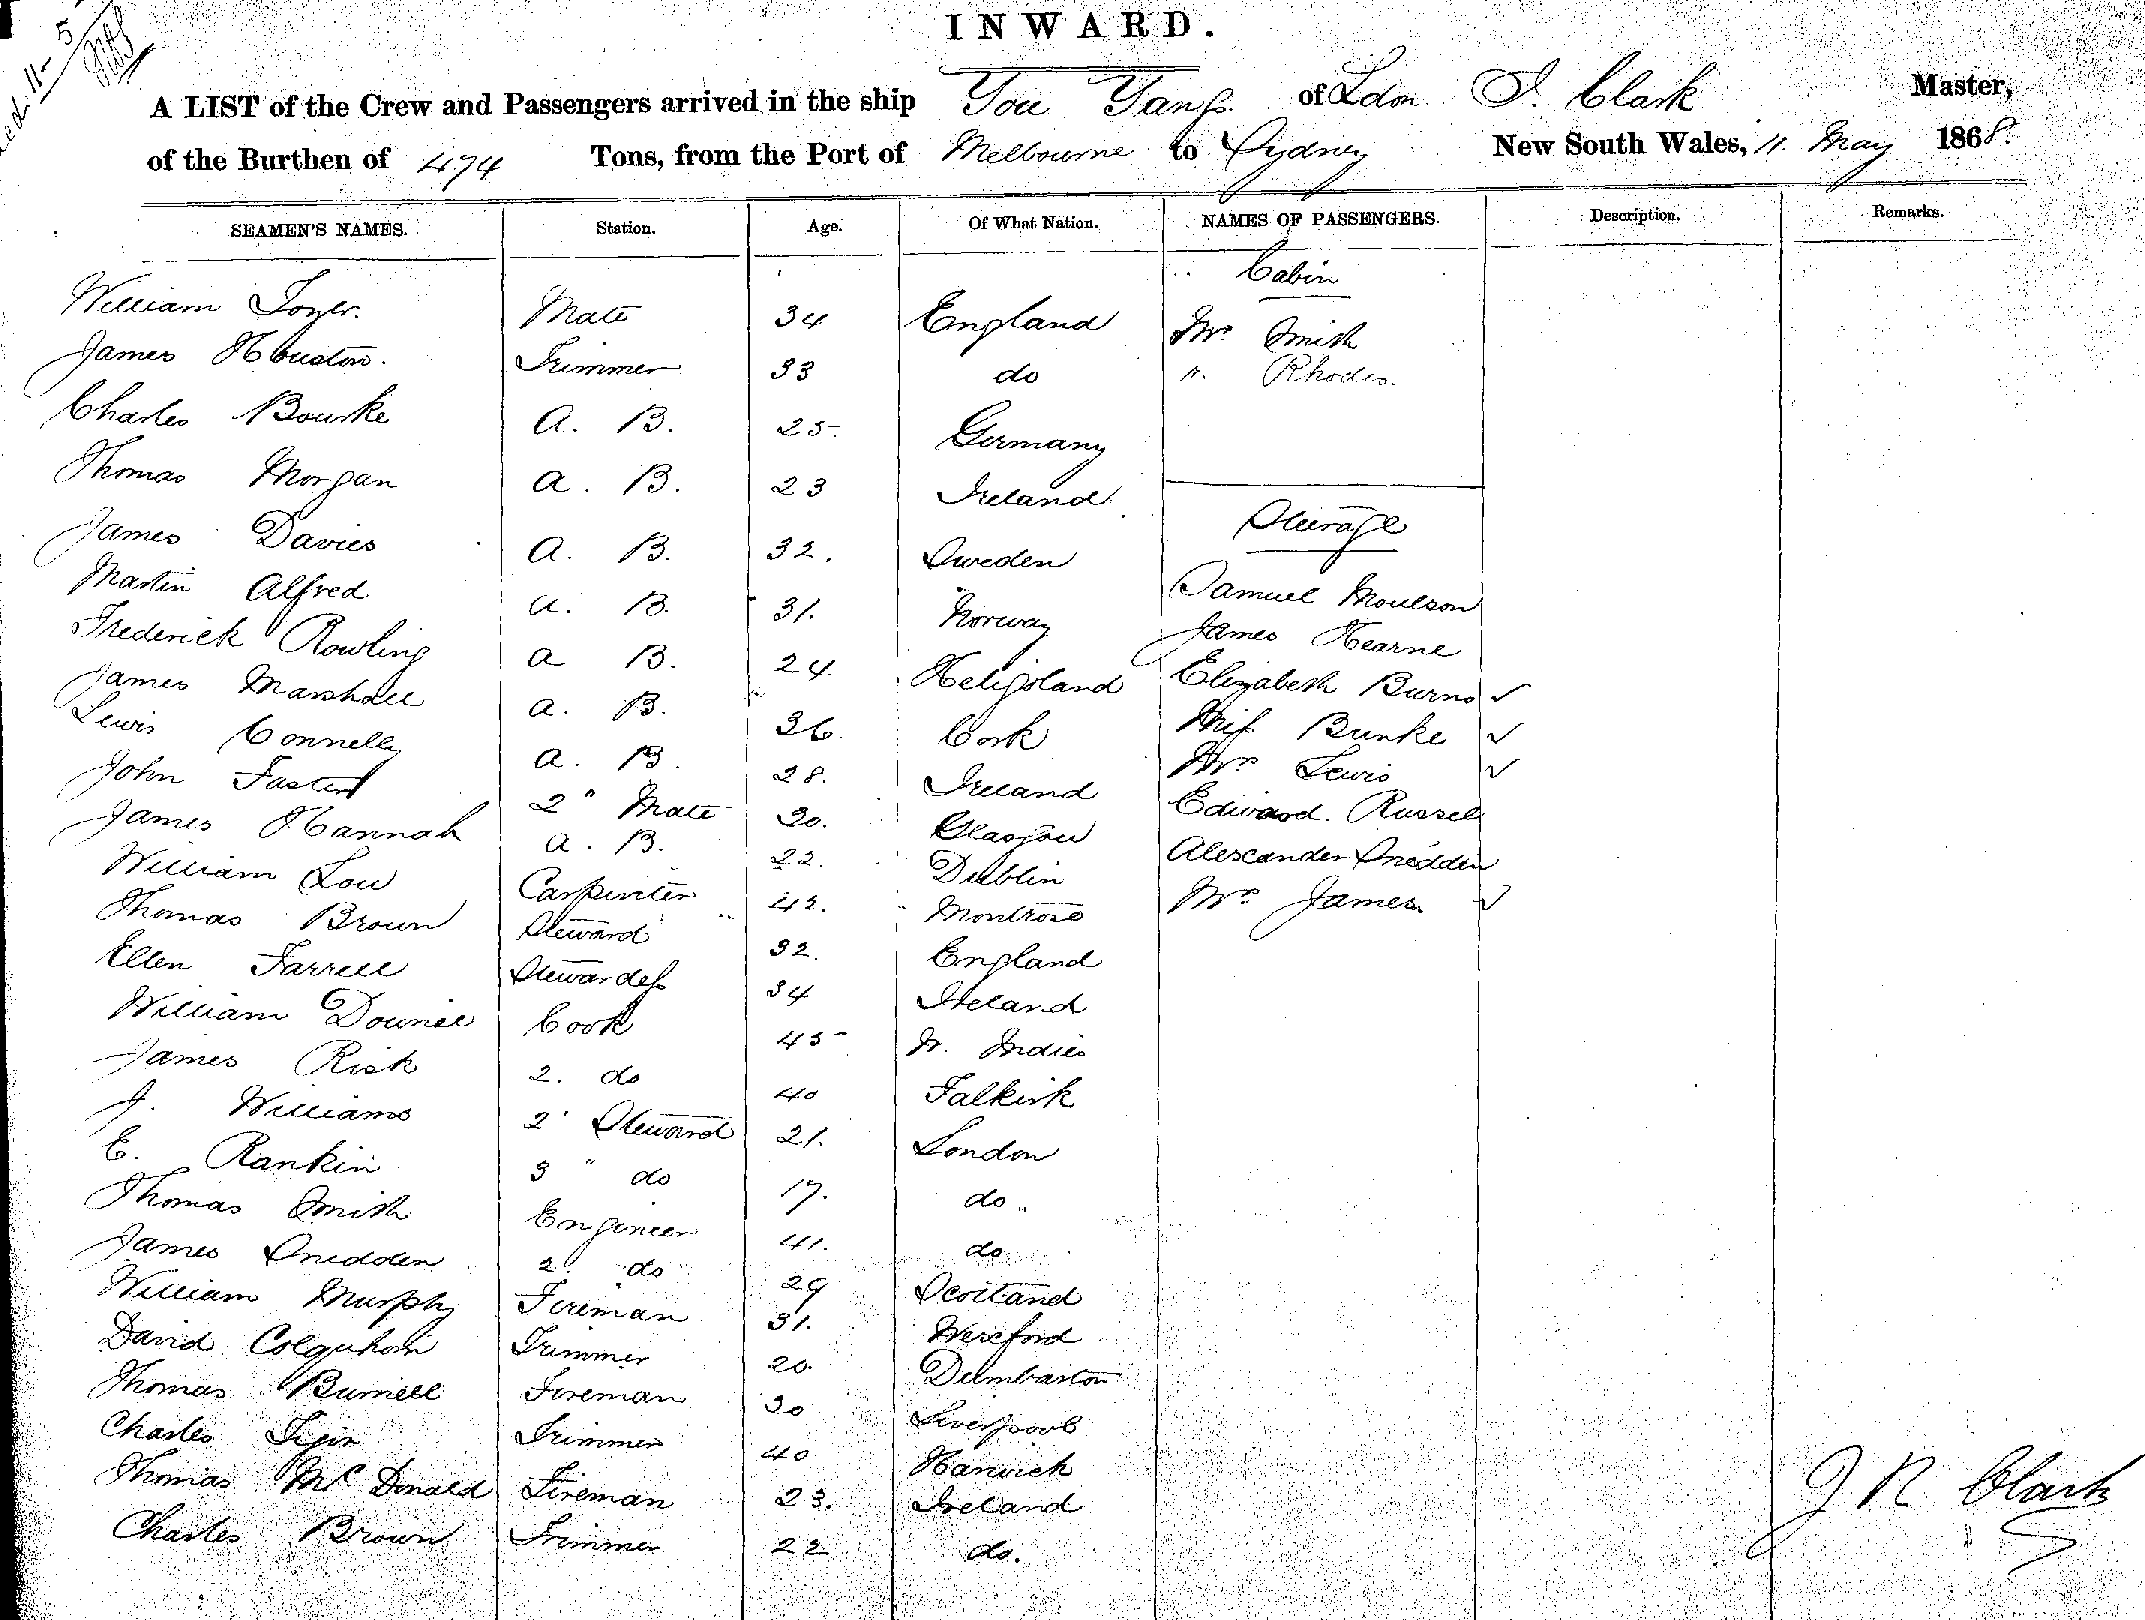 INWARD.
11-5
A LIST of the Crew and Passengers arrived in the ship You Yangs of Ldon J. Clark Master,
of the Burthen of 474 Tons, from the Port of Melbourne to Sydney New South Wales, 11. May 1868.
SEAMEN'S NAMES. Station. Age. Of What Nation. NAMES OF PASSENGERS. Description. Remarks.
Cabin
William Mate 34 England Mr Smith
James Houston. Trimmer 33 do ". Rhodes.
Charles Bourke A. B. 25. Germany
Thomas Morgan A. B. 23 Ireland
Steerage
James Davies A. B. 32. Sweden
Martin Alfred A. B. 31. Norway Samuel Moulson
Frederick Rowling A B. 24. Heligoland James Hearne
James Marshall A. B. 36. Cork Elizabeth Burns ✓
Lewis Connelly A. B. 28. Ireland Miss Burke ✓
John 2" Mate 30. Glasgow Mrs Lewis ✓
James Hannah A. B. 22. Dublin Edward. Russel
William Low Carpenter 42. Montrose Alexander Snedden
Thomas Brown Steward 32. England Mrs James ✓
Ellen Farrell Stewardess 34 Ireland
William Downie Cook 45 W. Indies
James Risk 2. do 40 Falkirk
J. Williams 2" Steward 21. London
E. Rankin 3 " do 17. do
Thomas Smith Engineer 41. do
James Snedden 2. do 29 Scotland
William Murphy Fireman 31. Wexford
David Colquhoun Trimmer 20. Dumbarton
Thomas Burnell Fireman 30 Liverpool
Charles Trimmer 40 Harwich
Thomas McDonald Fireman 23. Ireland
Charles Brown Trimmer 22 do.
J R Clark